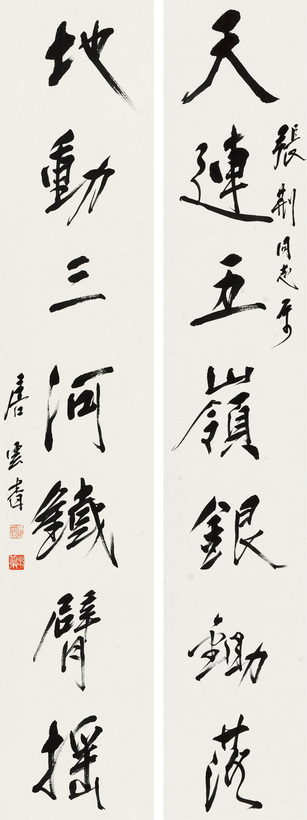 天連五嶺銀鋤落
張荊同志屬
地動三河鐵臂搖
唐雲